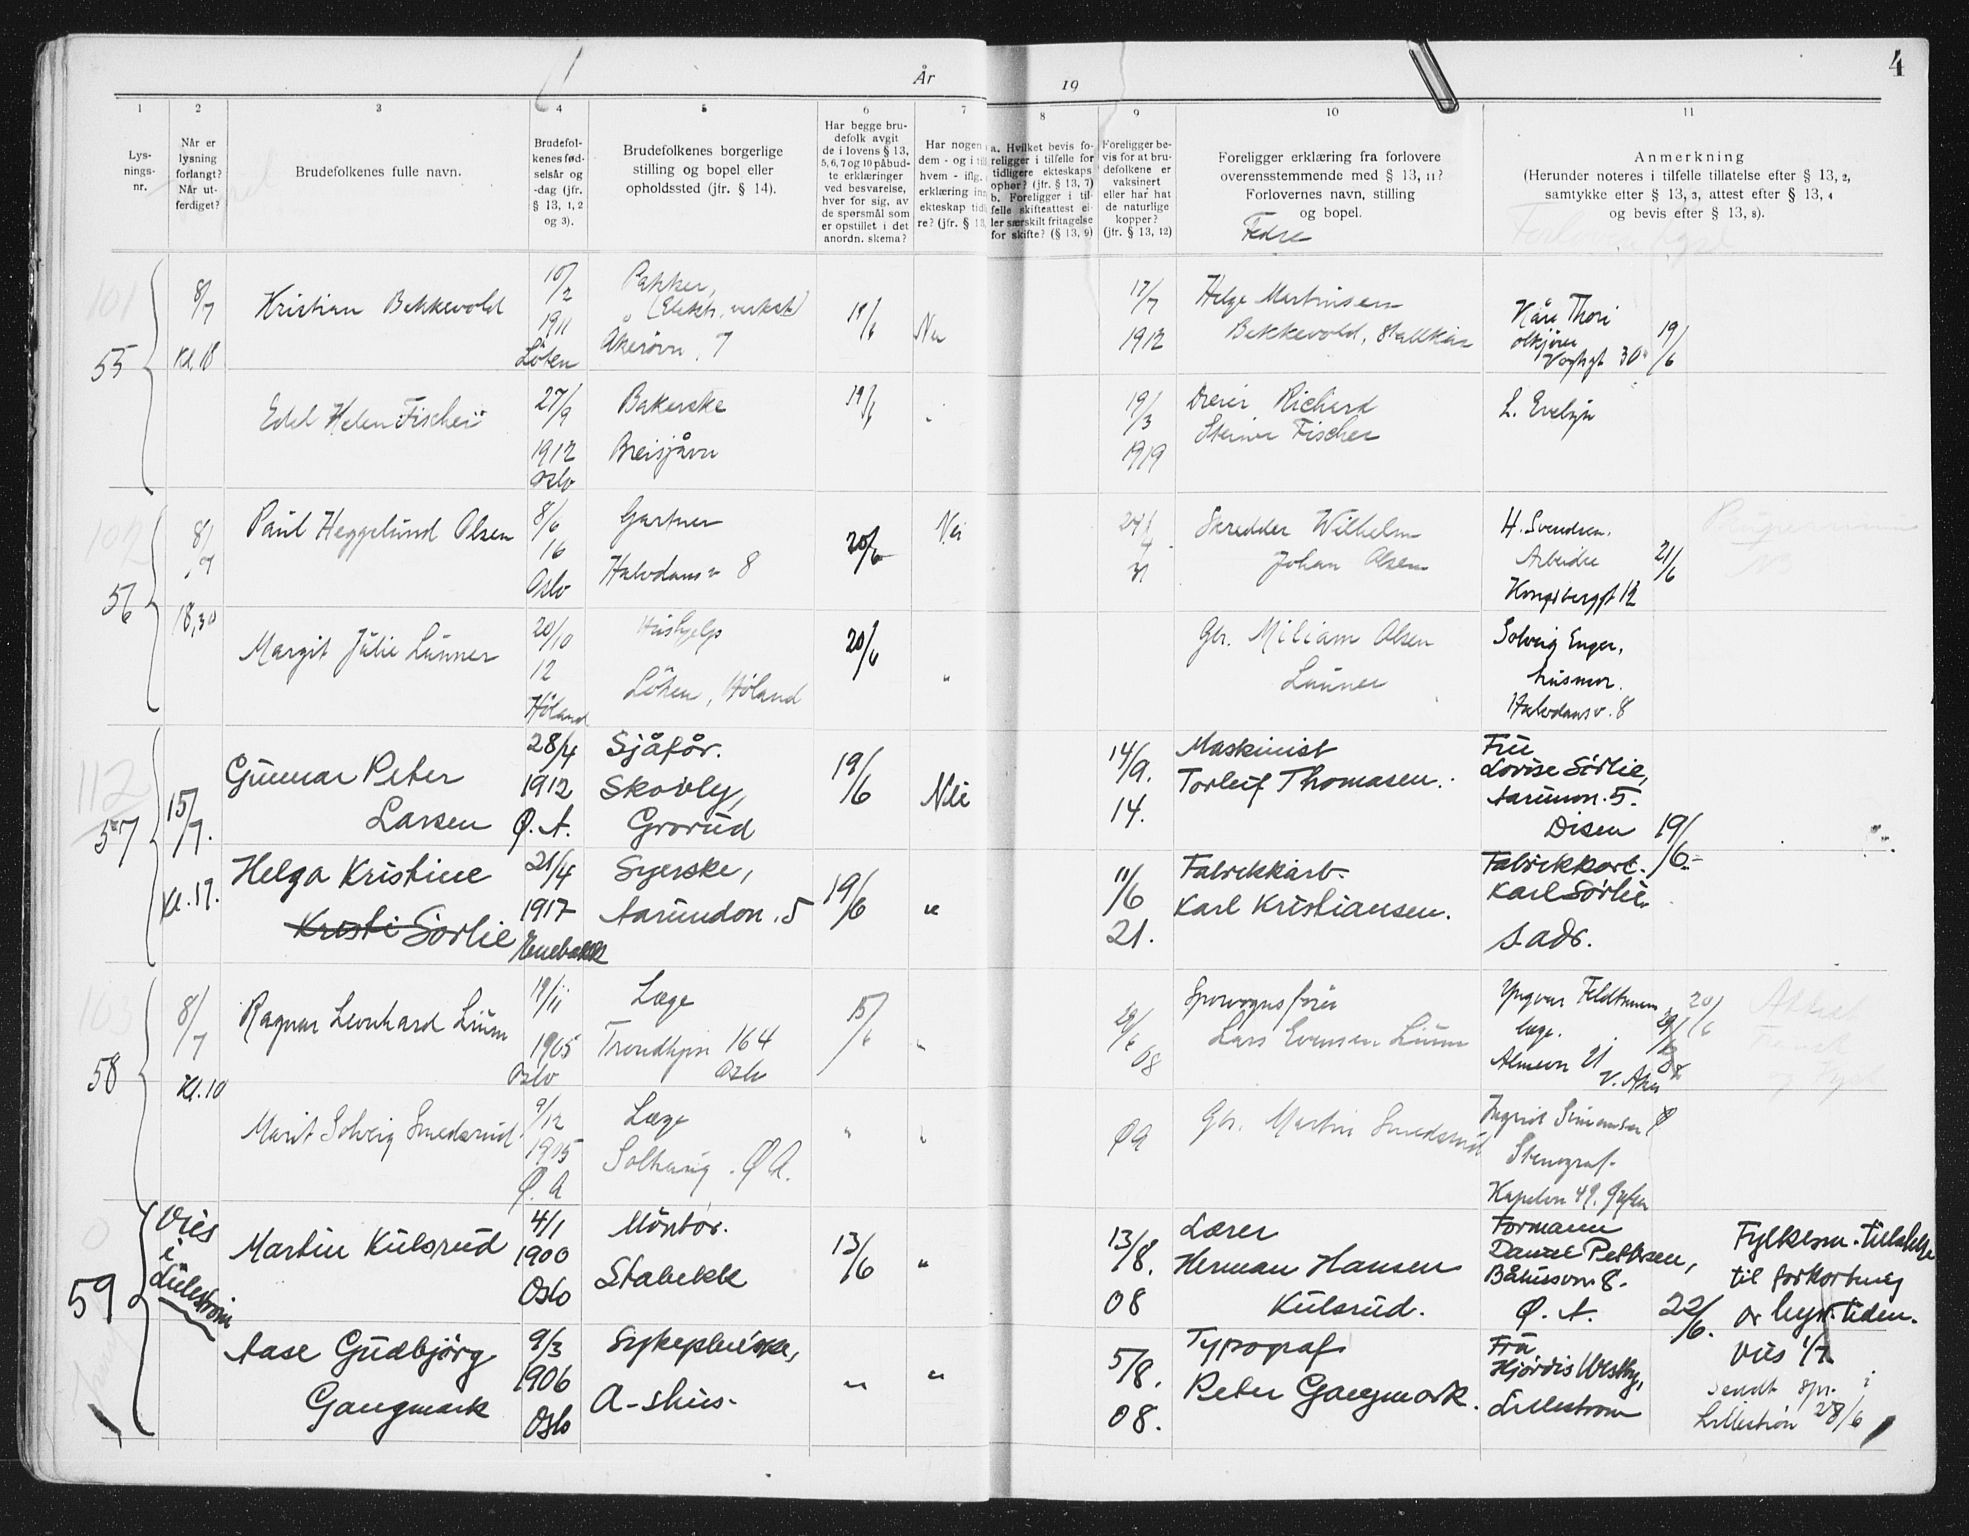 År
19
4
1
2
3
4
5
6
7
8
9
10
11
Lys-
nings-
nr.
Når er
lysning
forlangt?
Når ut-
ferdiget?
Brudefolkenes fulle navn.
Brudefol-
kenes fød-
selsår og
-dag (jfr.
§ 13, 1, 2
og 3).
Brudefolkenes borgerlige
stilling og bopel eller
opholdssted (jfr. § 14).
Har begge bru-
defolk avgit
de i lovens § 13,
5, 6, 7 og 10 påbud-
te erklæringer
ved besvarelse,
hver for sig, av
de spørsmål som
er opstillet i det
anordn. skema?
Har nogen
dem - og i
hvem - iflg.
erklæring
ekteskap
re? (jfr. § 13,
a. Hvilket bevis fo-
religger i tilfelle for
tidligere ekteskaps
ophør? (jfr. § 13, 7)
b. Foreligger i til-
felle skifteattest el-
ler særskilt fritagelse
for skifte? (§ 13, 9)
Foreligger be-
vis for at bru-
defolkene er
vaksinert
eller har hat
de naturlige
kopper?
(jfr. § 13, 12)
Foreligger erklæring fra forlovere
overensstemmende med § 13, 11?
Forlovernes navn, stilling
og bopel.
Fedre
Anmerkning
(Herunder noteres i tilfelle tillatelse efter § 13, 2,
samtykke etter § 13, 3, attest efter § 13, 4
og bevis efter § 13, 8).
101
55
8/7
Kl. 18
Kristian Bekkevold
10/2
1911
Löten
Pakker,
(Elektr. verkst)
7
19/6
Nei
17/7
1912
Helge Martinsen
Bekkevold,
Kåre Thori
30
19/6
Edel Helen Fischer
27/9
1912
Oslo
Bakerske
Breisjåvn
19/6
19/3
1919
Richard
Fischer
L. Evelyn
102
56
8/7
18,30
Paul Heggelund Olsen
8/6
16
Oslo
Gartner
Halvdansv 8
20/6
Nei
31
Skredder Wilhelm
Johan Olsen
H. Svendsen.
Arbeider
Kongsberggt 12
21/6
NB
Margit Julie Lunner
20/10
12
Höland
Hushjelp
Löken, Höland
20/6
"
Gbr. Miliam Olsen
Lunner
Solveig Enger,
husmor.
Halvdansv. 8
112
57
15/7.
Kl. 17.
Gunnar Peter
Larsen
28/4
1912
Ø. A.
Sjåför.
Skovly,
Grorud
19/6
Nei
14/9.
14.
Maskinist
Torleif Thomasen.
Fru
Lovise Sörlie,
5.
Disen 19/6
Helga Kristine
Kristi Sörlie
21/4
1917
Enebakk
Syerske,
Aarundon. 5
19/6
"
11/6
21.
Fabrikkarb.
Karl Kristiansen.
Fabrikkarb.
Karl Sörlie
s. adr.
103
58
8/7
Kl. 10
Ragnar Leonhard Lium
19/11
1905
Oslo
Læge
Trondhjmv 164
Oslo
15/6
"
29/6
08
Sporvognsfører
Lars Evensen Lium
Yngvar Feldtmann
læge.
V. Aker
20/6
Attest
Marit Solveig Smedsrud
9/12
1905
Ø. A
Læge
Solhaug. Ø A.
"
"
09
Gbr. Martin Smedsrud
Ingrid Simonsen
Stenograf.
59
Vies
i
Lillestrøm
Martin Kulsrud
4/1
1900
Oslo
Montör.
Stabekk
13/6
"
13/8.
08
Lærer
Herman Hansen
Kulsrud.
Formann
Daniel Pettersen,
Båhusvn 8.
Ø. A. 22/6.
Fylkesm. tillatelse
til forkortning
av lysn. tiden.
Aase Gudbjörg
Gangmark
9/3
1906
Oslo
Sykepleierske,
A-shus.
"
"
5/8.
08.
Typograf
Peter Gangmark.
Fru
Hjördis Westby,
Lilleström
Vies 1/7
Sendt spr. i
Lilleström 28/6